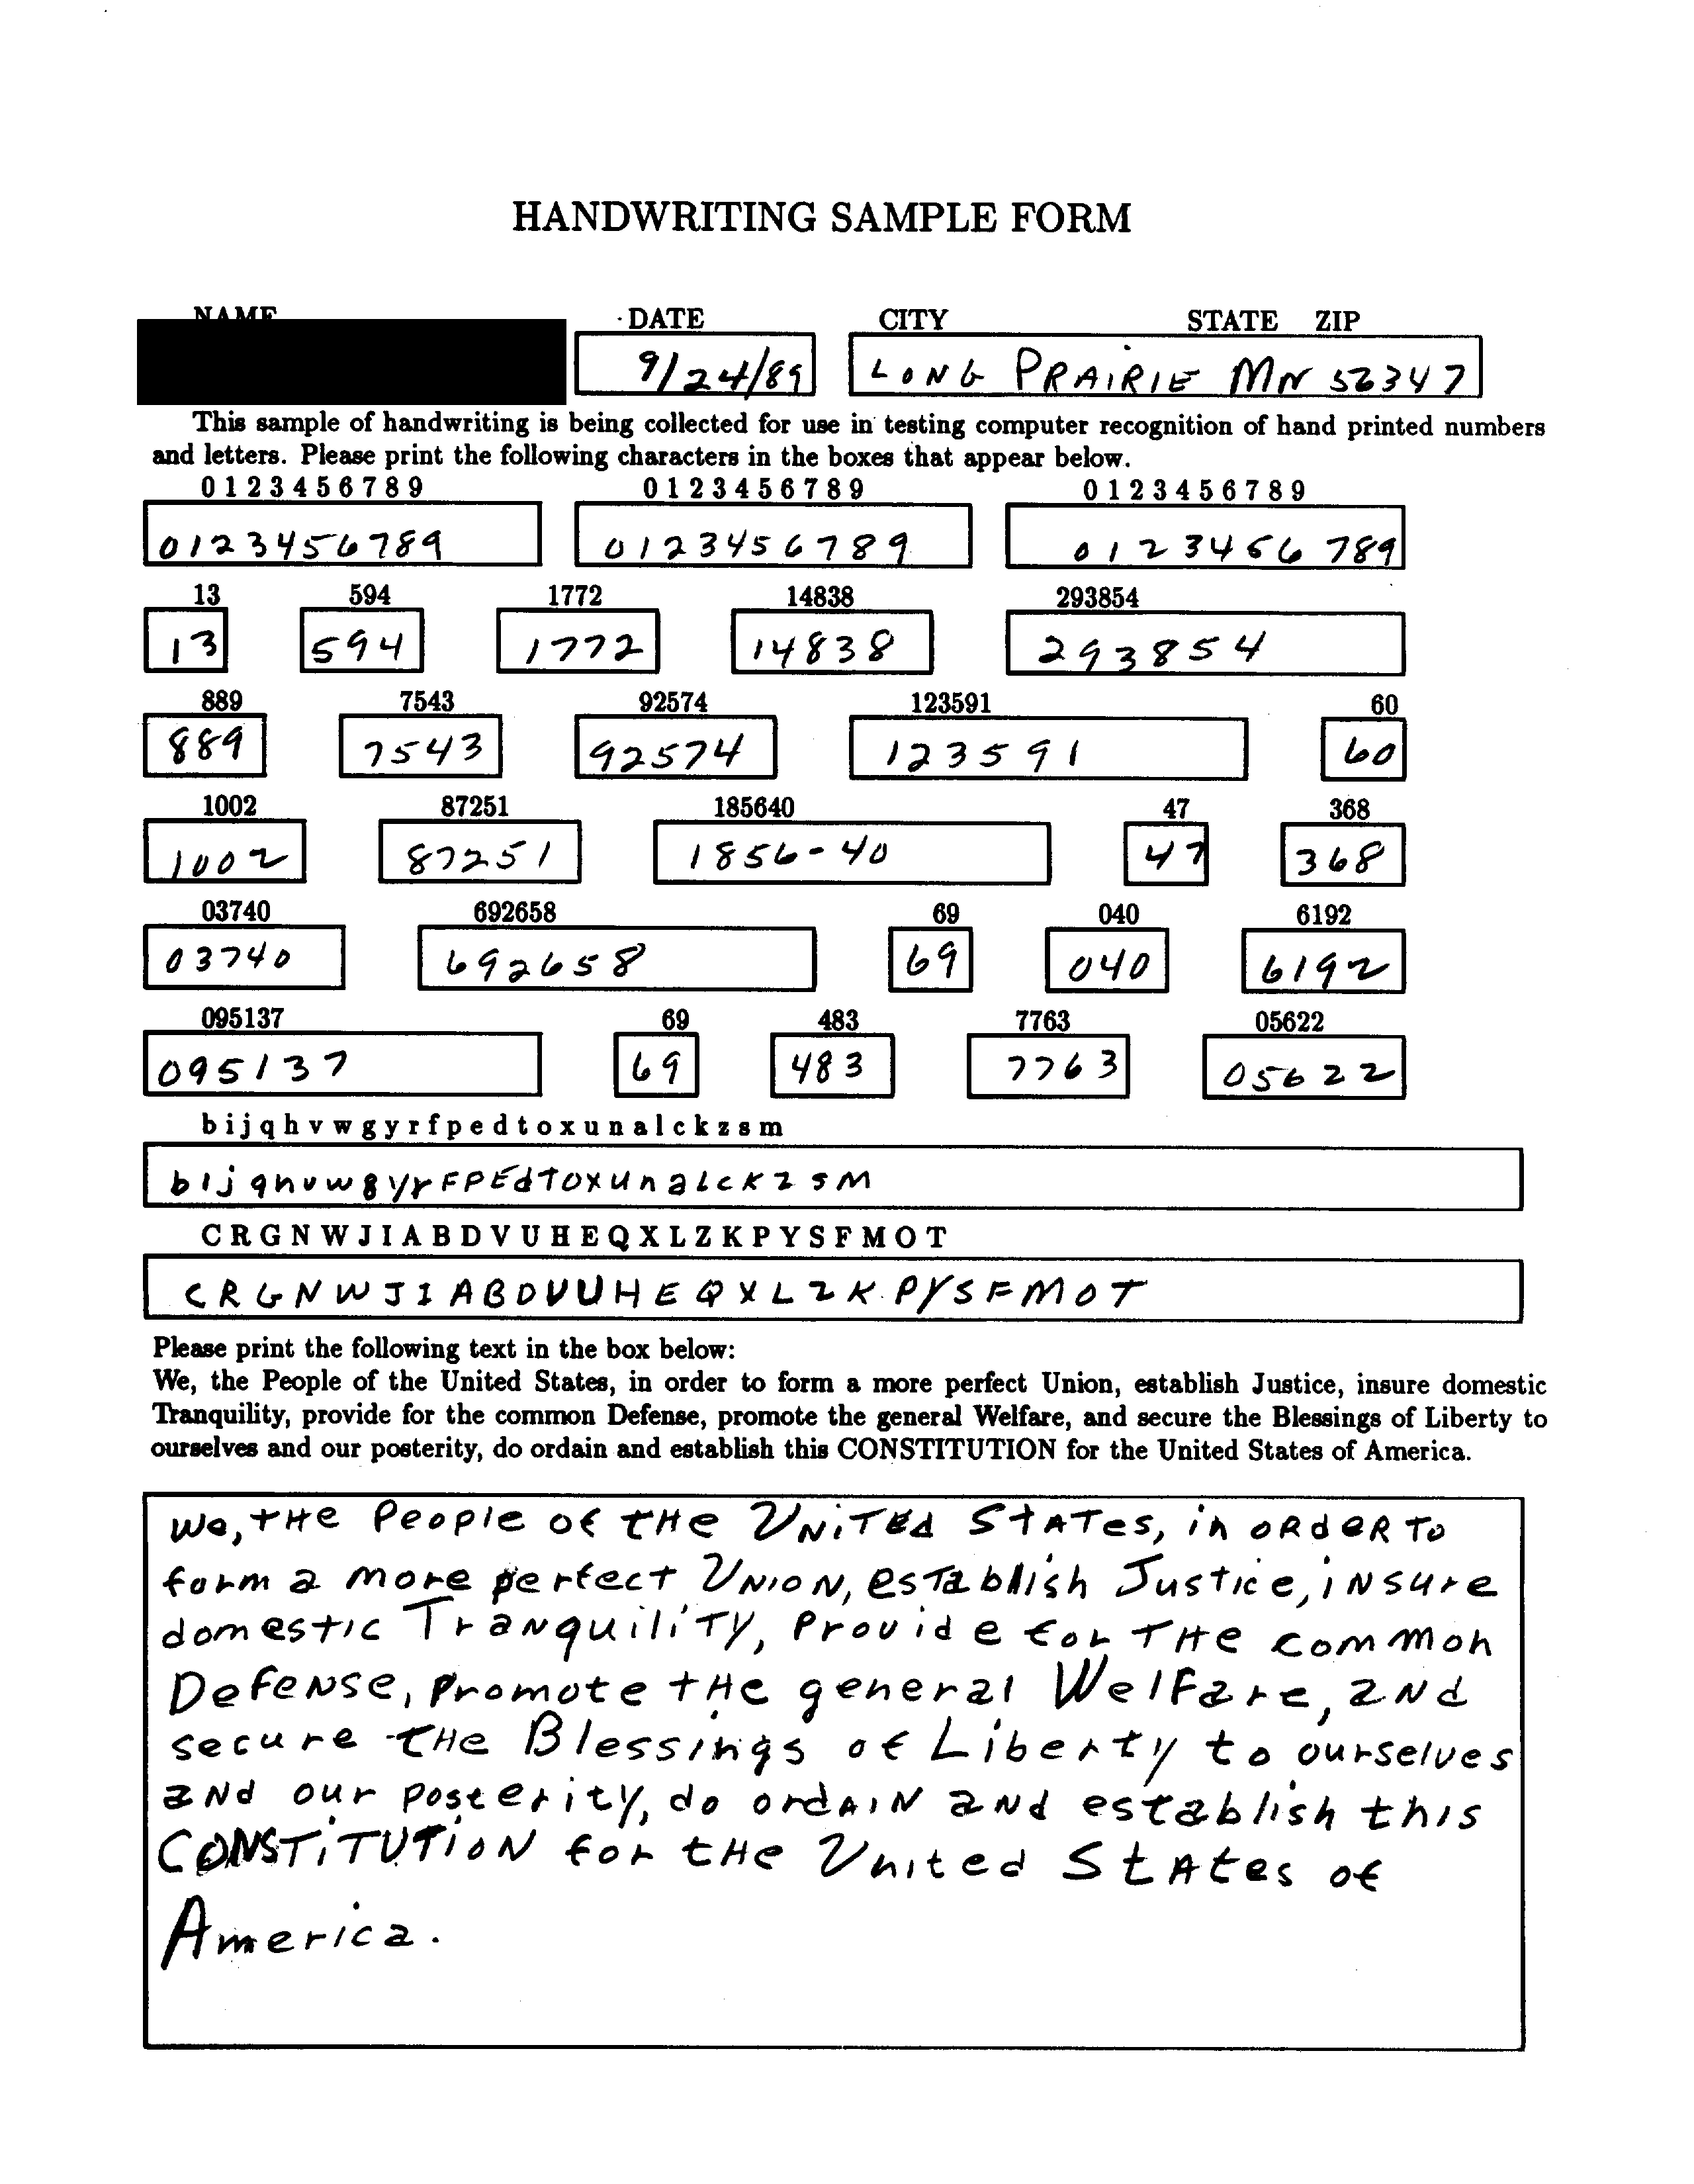 HANDWRITING SAMPLE FORM
NAME DATE CITY STATE ZIP
9/24/89 LONG PRAIRIE MN 56347
This sample of handwriting is being collected for use in testing computer recognition of hand printed numbers
and letters. Please print the following characters in the boxes that appear below.
0 1 2 3 4 5 6 7 8 9 0 1 2 3 4 5 6 7 8 9 0 1 2 3 4 5 6 7 8 9
0123456789 0123456789 0123456789
13 594 1772 14838 293854
13 594 1772 14838 293854
889 7543 92574 123591 60
889 7543 92574 123591 60
1002 87251 185640 47 368
1002 87251 1856-40 47 368
03740 692658 69 040 6192
03740 692658 69 040 6192
095137 69 483 7763 05622
095137 69 483 7763 05622
b i j q h v w g y r f p e d t o x u n a l c k z s m
bIjqhvwgyrFPEdTOxUnaLcKzsM
C R G N W J I A B D V U H E Q X L Z K P Y S F M O T
CRGNWJIABDVUHEQXLZKPYSFMOT
Please print the following text in the box below:
We, the People of the United States, in order to form a more perfect Union, establish Justice, insure domestic
Tranquility, provide for the common Defense, promote the general Welfare, and secure the Blessings of Liberty to
ourselves and our posterity, do ordain and establish this CONSTITUTION for the United States of America.
We, tHe People of tHe UNiTEd StATes, in ORdeR To
form a more perfect UNION, esTablish Justice, iNsure
domestic TraNquiliTY, Provide for THe common
DefeNse, Promote tHe general WelFare, aNd
secure tHe Blessings of Liberty to ourselves
aNd our posterity, do ordAIN aNd establish this
CONSTiTUTiON for tHe United StAtes of
America.